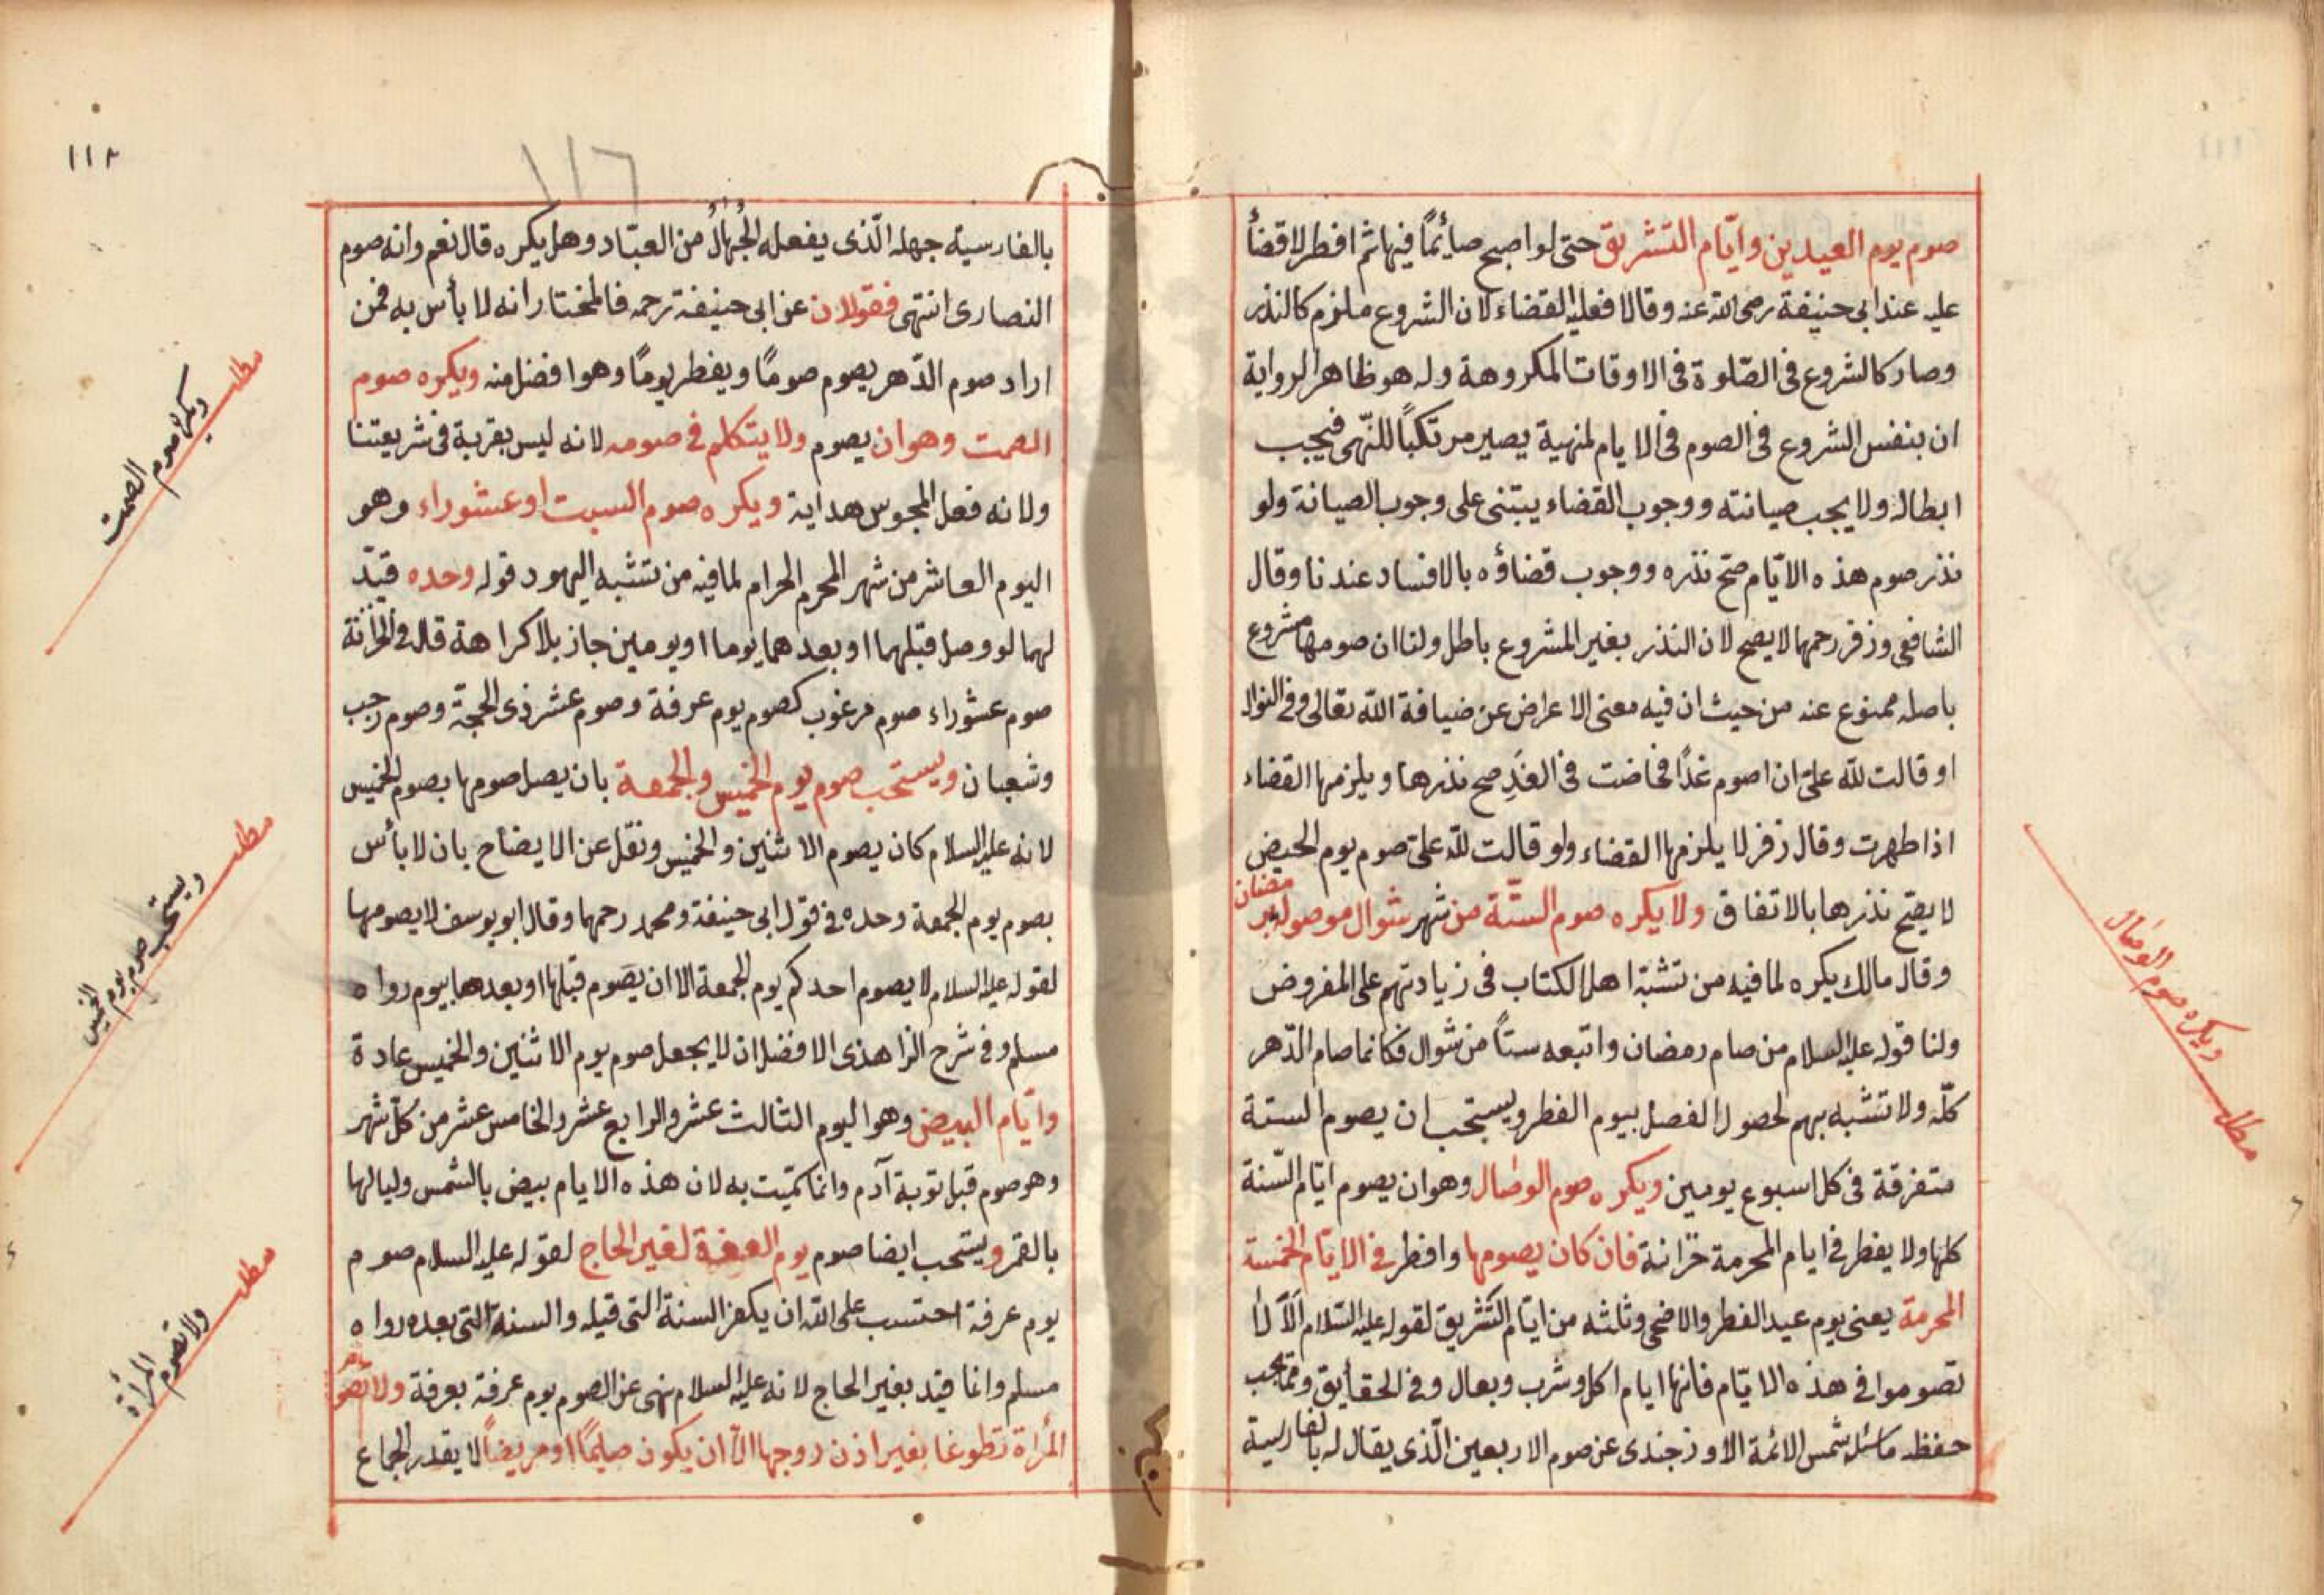 صوم يوم العيدين وايّام التشريق حتى لو اصبح صائمًا فيها ثم افطر لا قضأ
عليه عند ابى حنيفة رضى الله عنه وقالا فعليه القضاء لان الشروع ملزم كالنذر
وصار كالشروع فى الصّلوة فى الاوقات المكروهة وله هو ظاهر الرواية
ان بنفس الشروع فى الصوم فى الايام المنهية يصير مرتكبًا للنّهى فيجب
ابطاله ولا يجب صيانته ووجوب القضاء يبتنى على وجوب الصيانة ولو
نذر صوم هذه الايّام صحّ نذره ووجوب قضاؤه بالافساد عندنا وقال
الشافعى وزفر رحمهما لا يصح لان النذر بغير المشروع باطل ولنا ان صومها مشروع
باصله ممنوع عنه من حيث ان فيه معنى الاعراض عن ضيافة الله تعالى وفى
او قالت لله علىّ ان اصوم غدًا فحاضت فى الغدِ صح نذرها ويلزمها القضاء
اذا طهرت وقال زفر لا يلزمها القضاء ولو قالت لله علىّ صوم يوم الحيض
لا يصّح نذرها بالاتفاق ولا يكره صوم الستّة من شهر شوال موصولة برمضان
وقال مالك يكره لما فيه من تشبّه اهل الكتاب فى زيادتهم على المفروض
ولنا قوله عليه السلام من صام رمضان واتبعه ستاً من شوال فكانما صام الدّهر
كلّه ولا تشبه بهم لحصول الفصل بيوم الفطر ويستحب ان يصوم الستة
متفرقة فى كل اسبوع يومين ويكره صوم الوصال وهو ان يصوم ايّام السّنة
كلها ولا يفطر فى ايام المحرمة خزانة فان كان يصومها وافطر فى الايّام الخمسة
المحرمة يعنى يوم عيد الفطر والاضحى وثلثه من ايّام التّشريق لقوله عليه السّلام اَلا لا
تصوموا فى هذه الايّام فانها ايام اكل وشرب وبعال وفى الحقايق ومما يجب
حفظه ما سئل شمس الائمة الاوزجندى عن صوم الاربعين الّذى يقال له بالفارسية
ويكره صوم الوصال
مطلب
١١٢
١١٦
بالفارسية جهله الّذى يفعله الجُهالُ من العبّاد وهل يكره قال نعم وانه صوم
النصارى انتهى فقولان عن ابى حنيفة رحمه فالمختار انه لا بأس به فمن
اراد صوم الدّهر يصوم صومًا ويفطر يومًا وهو افضل منه ويكره صوم
الصمت وهو ان يصوم ولا يتكلم فى صومه لانه ليس بقربة فى شريعتنا
ولانه فعل المجوس هداية ويكره صوم السبت او عشوراء وهو
اليوم العاشر من شهر المحرم الحرام لما فيه من تشبه اليهود قوله وحده قيّد
لهما لو وصل قبلهما او بعدهما يوما او يومين جاز بلا كراهة قال فى الخزانة
صوم عشوراء صوم مرغوب كصوم يوم عرفة وصوم عشر ذى الحجّة وصوم رجب
وشعبان ويستحب صوم يوم الخميس والجمعة بان يصل صومها بصوم الخميس
لانه عليه السلام كان يصوم الاثنين والخميس ونقل عن الايضاح بان لا بأس
بصوم يوم الجمعة وحده فى قول ابى حنيفة ومحمد رحمهما وقال ابو يوسف لا يصومها
لقوله عليه السلام لا يصوم احدكم يوم الجمعة الا ان يصوم قبلها او بعدها بيوم رواه
مسلم وفى شرح الزاهدى الافضل ان لا يجعل صوم يوم الاثنين والخميس عادة
وايّام البيض وهو اليوم الثالث عشر والرابع عشر والخامس عشر من كلّ شهر
وهو صوم قبل توبة آدم وانما سمّيت به لان هذه الايام بيض بالشمس ولياليها
بالقمر ويستحب ايضا صوم يوم العرفة لغير الحاج لقوله عليه السلام صوم
يوم عرفة احتسب على الله ان يكفر السنة التى قبله والسنة التى بعده رواه
مسلم وانما قيد بغير الحاج لانه عليه السلام نهى عن الصوم يوم عرفة بعرفة ولا تصوم
المرأة تطوعا بغير اذن زوجها الّا ان يكون صايمًا او مريضاً لا يقدر الجماع
مطلب
ويكره صوم الصمت
مطلب
ويستحب صوم يوم الخميس
مطلب
ولا تصوم المرأة